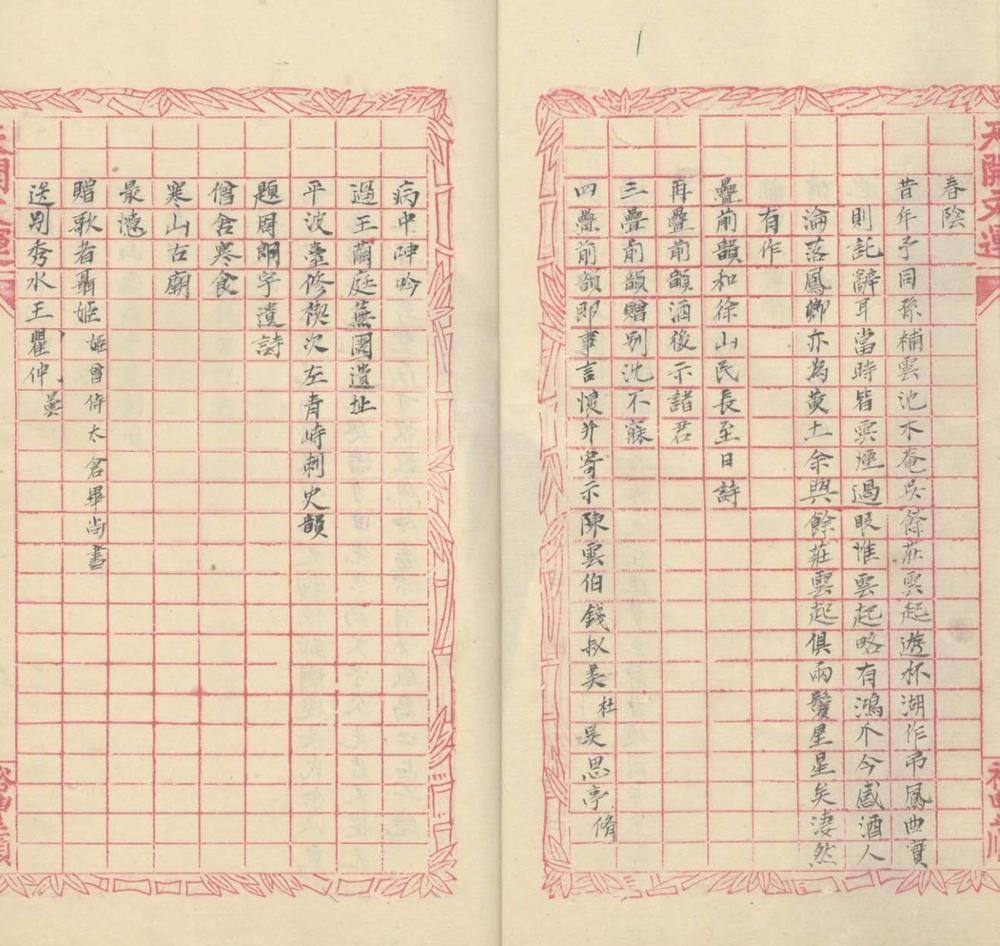 春陰
昔年予同孫補雲沈不菴吳餘莊雲起遊杯湖作弔鳳曲實
則託辭耳當時皆雲煙過眼惟雲起略有鴻爪今感酒人
淪落鳳卿亦為黃土余與餘莊雲起俱兩鬢星星矣淒然
有作
疊前韻和徐山民長至日詩
再疊前韻酒後示諸君
三疊前韻贈別沈不寐
四疊前韻即事言懷并寄示陳雲伯錢叔美杜吳思亭脩
天開文運
病中呻吟
過王繭庭蕪園遺址
平波臺修禊次左青峙刺史韻
題周朗字遺詩
僧舍寒食
寒山古廟
最憶
贈歌者聶姬姬曾侍太倉畢尚書
送別秀水王瞿仲曇